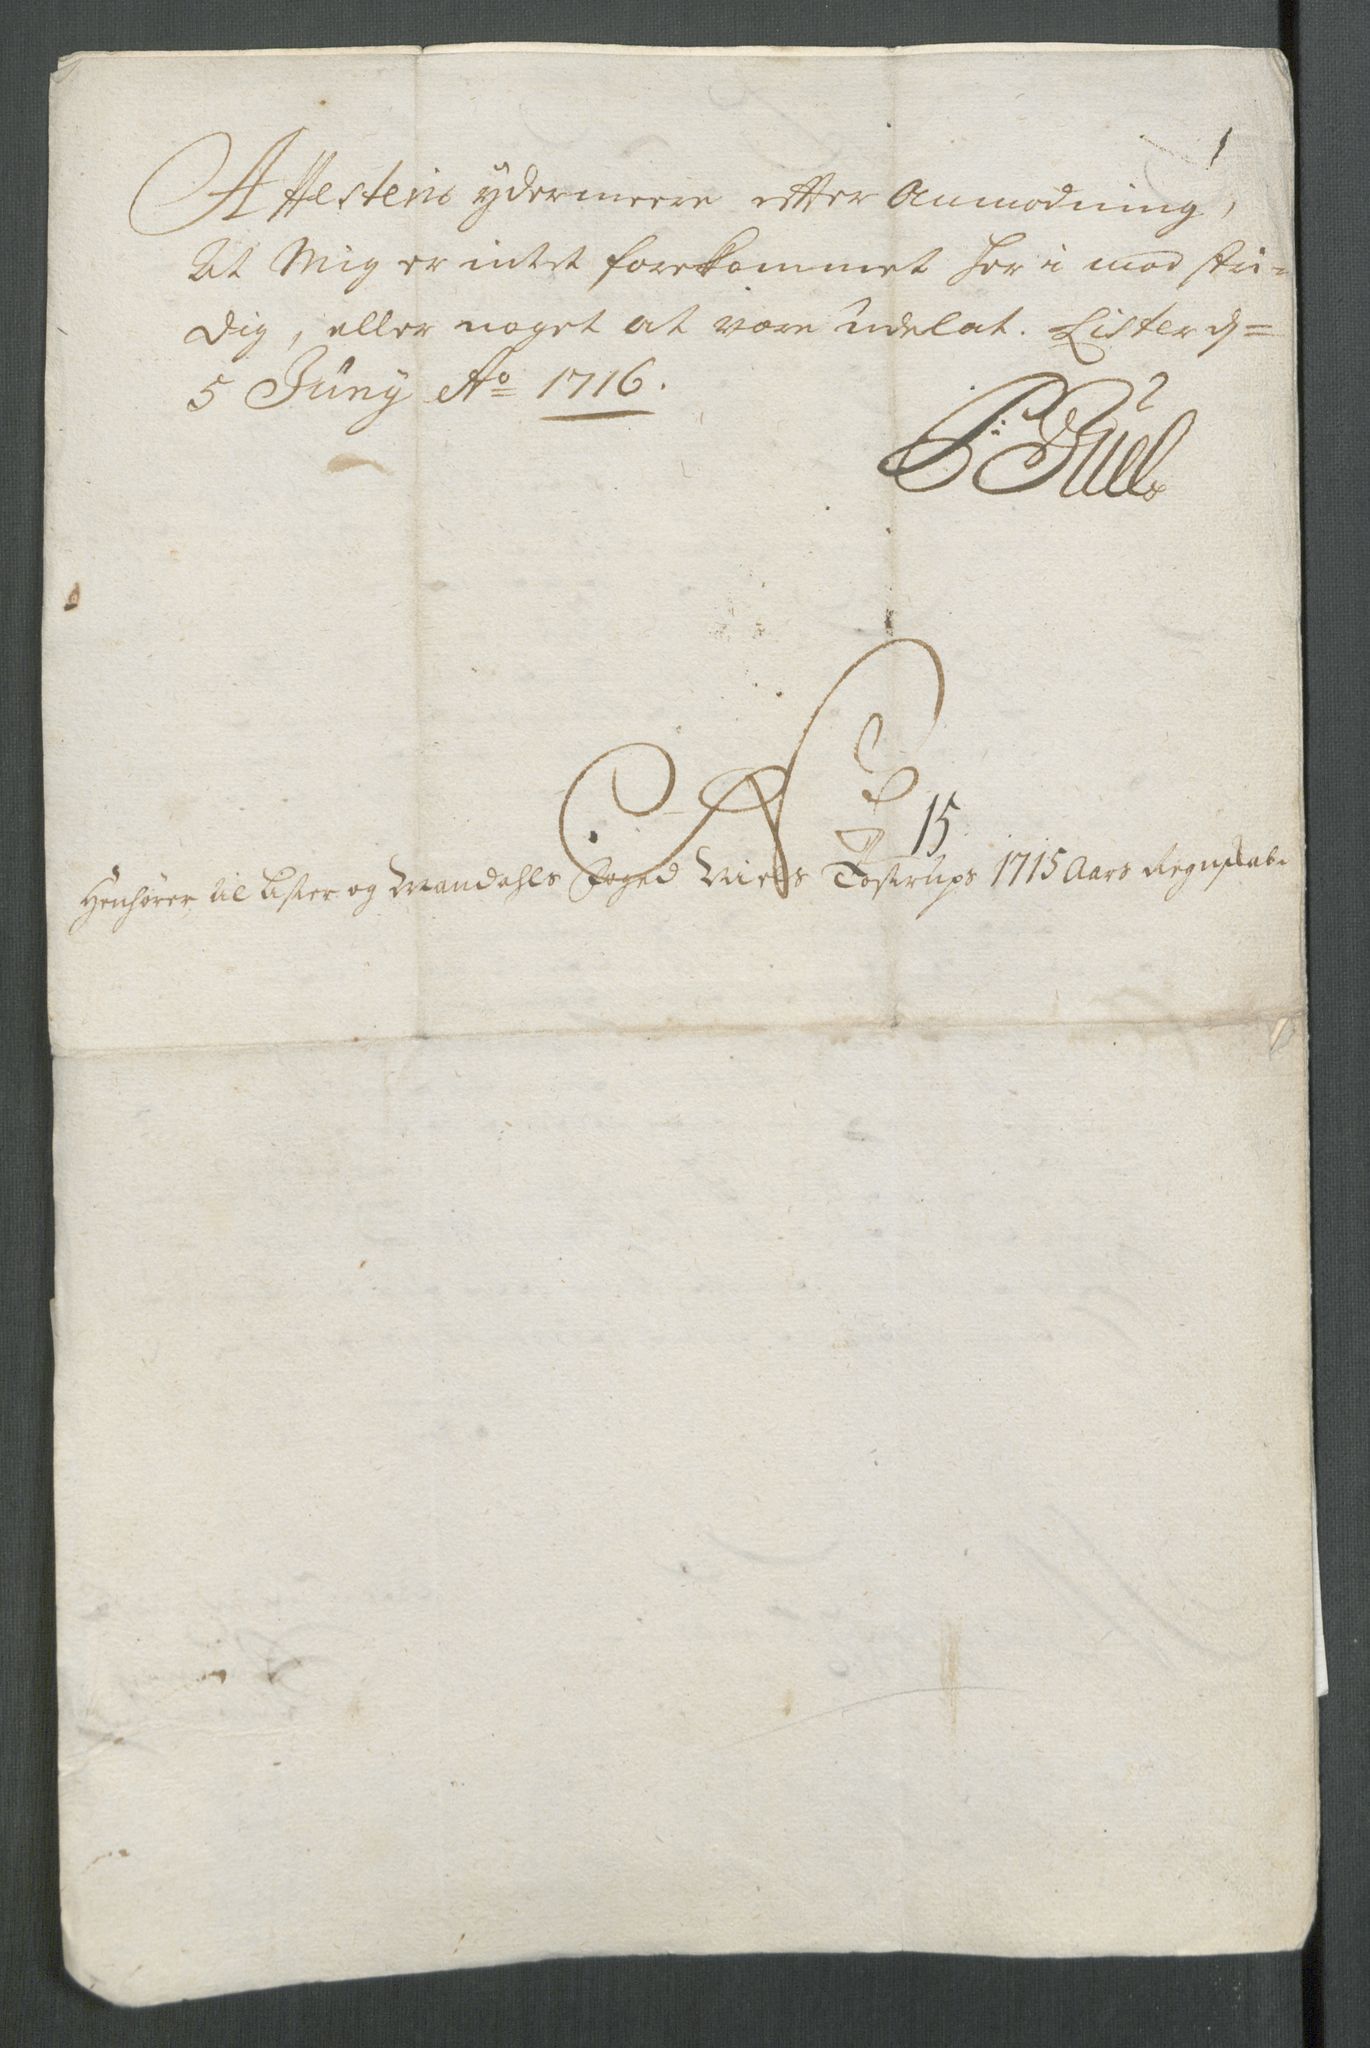 Attesteris ydermeere efter Anmodning,
At Mig er intet forekommet her i mod stri-
dig, eller noget at være udelat. Lister d=
5 Juny Ao 1716.
Juell
No
15
Henhører til Lister og Mandahls Foged Niels Tostrups 1715 Aars Regnskab.